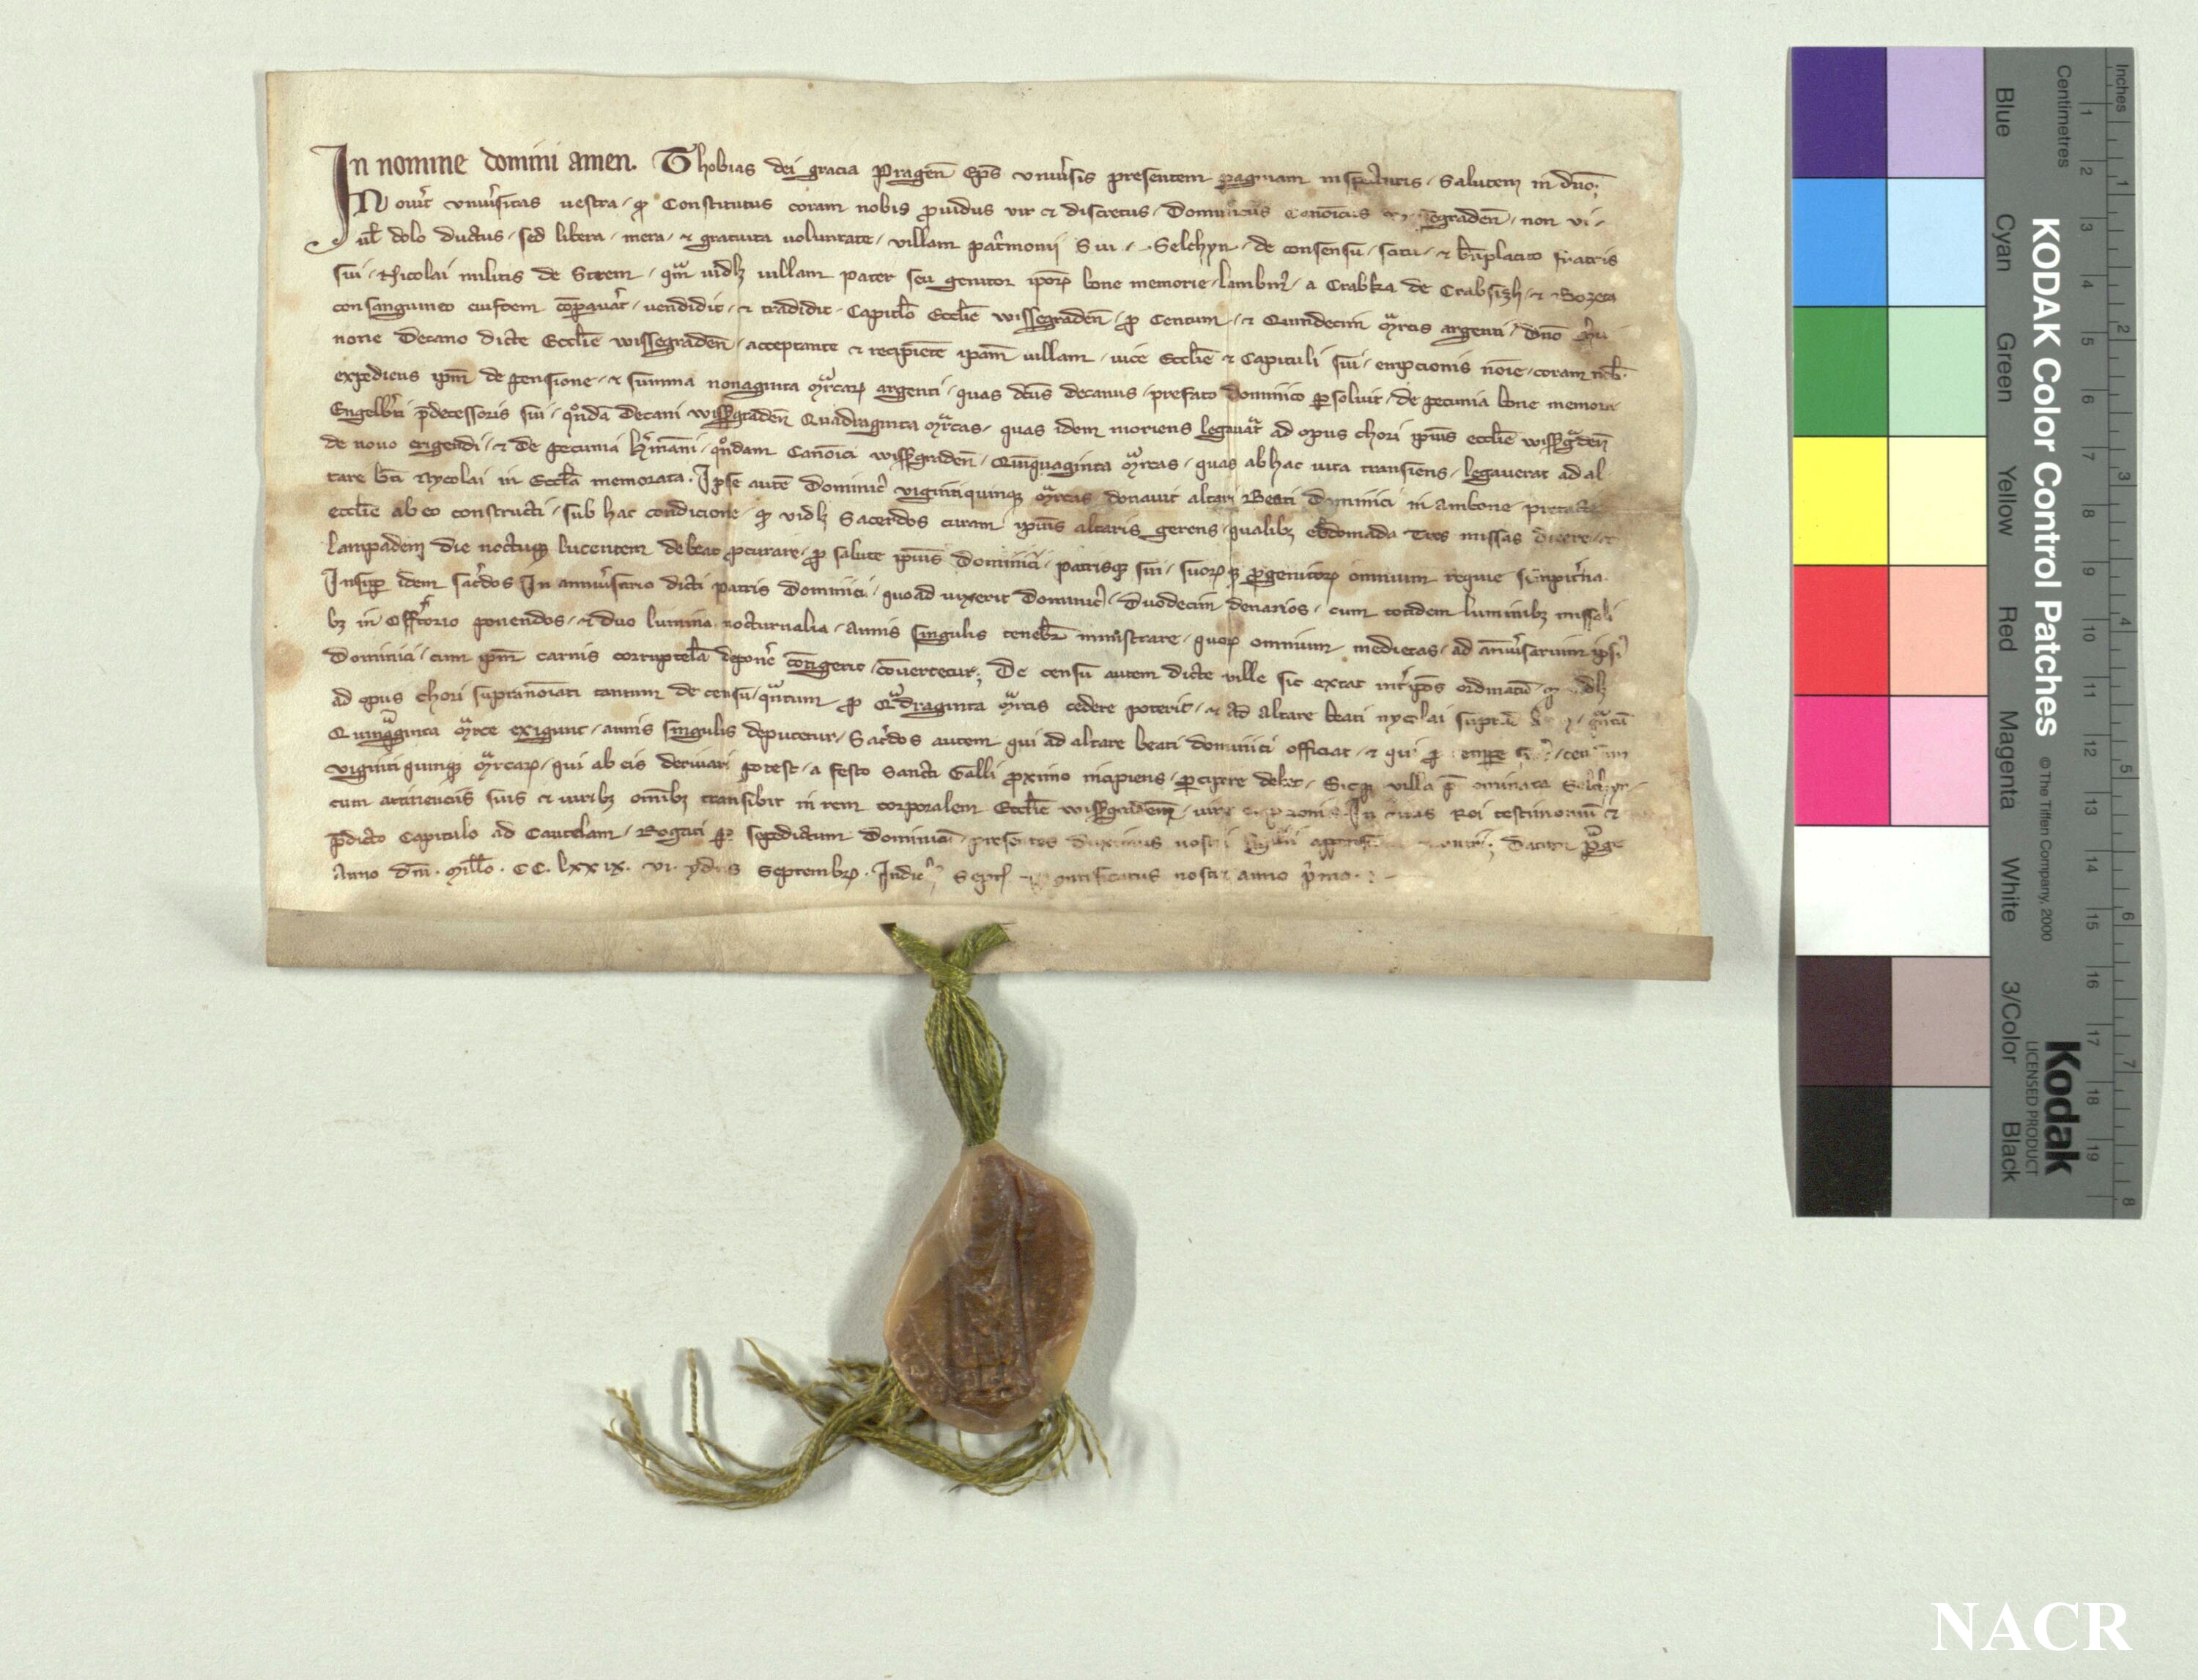 In nomine domini amen. Thobias dei gracia Pragen̄ Ep̄s vniu̓sis presentem paginam inspecturis salutem in dn̄o;
Nou̓it vniu̓sitas uestra, ꝙ Constitutus coram nobis prouidus vir et discretus, Dominicus Canoicus egraden̄, non vi,
ul̄ dolo ductus, sed libera, mera, et gratuita uoluntate, villam pat̓monii Sui, Selchyn, de consensu, scitu, et bn̄placito fratris
sui, Nicolai militis de Strem, qm̄ uidlꝫ uillam pater seu genitor ipoꝝ bone memorie, a Crabka de Crabsizh, et Bozeta
consanguineo eiusdem cōpauāt, uendidit, et tradidit, Capitl̄o Eccl̄ie wissegraden̄, ꝓ Centum, et Quindecim mr̄cis argenti, dn̄o
none Decano dicte Eccl̄ie wissegraden̄, acceptante et recipiēte ipam̄ uillam, uice Eccl̄ie et Capituli sui, empcionis noīe, coram nob̄.
expeditus ipm̄ de pensione, et summa nonaginta mr̄caꝝ argenti, quas dc̄us decanus, prefato dominico ꝑsoluit, de pecunia bone memorie
Engelb̓ti p̄decessoris sui, qn̄dā Decani wissegraden̄ Quadraginta mr̄cas, quas idem moriens legauāt ad opus chori ipīus eccl̄ie wissegᵃden̄
de nouo erigendi, et de pecunia h̓māni, qn̄dam Canoīci wissegraden̄, Quīquaginta mr̄cas, quas ab hac uita transiens, legauerat ad al
tare bt̄i Nycolai in Eccl̄ia memorata. Ipse autē Dominic᾽ viginti quinqꝫ mr̄cas donauit altari Beati Dominici in ambone
eccl̄ie ab eo constructi, sub hac condicione, ꝙ vidlꝫ Sacerdos curam ipīus altaris gerens, qualibꝫ ebdomada Tres missas dicere, et
lampadem die noctuqꝫ lucentem debeat ꝓcurare, ꝓ salute ipīus Dominici, patrisqꝫ sui, suoꝝqꝫ ꝓgenitoꝝ omnium requie sēpit̓na.
Insuꝑ idem sac̓dos In anniu̓sario dicti patris Dominici, quoad uixerit Dominic᾽, Duodecim denarios, cum totidem luminibꝫ missali
bꝫ in Offertorio ponendos, et duo lumina nocturnalia, annis singulis teneb̄r ministrare, quoꝝ omnium medietas, ad anniu̓sarium ipsi᾽
Dominici, cum ipm̄ carnis corruptelā depon̓e cōtigerit, cōuertetur; De censu autem dicte uille sic extat int̓ ipōs ordinatū, ꝙ
ad opus chori supranoīati tantum de censu, qn̄tum ꝓ Qᵃdraginta mr̄cis cedere poterit, et ad altare beati nycolai
Quinqᵃginta mr̄ce exigunt, annis singulis deputetur, Sac̓dos autem qui ad altare beati dominici officiat, et qui
viginti quinqꝫ mr̄caꝝ, qui ab eis deriuari potest, a festo Sancti Galli ꝓximo incipiens, ꝑcipere debet, Sicqꝫ villa
cum attinenciis suis et iuribꝫ omībꝫ transibit in rem corporalem Eccl̄ie wissegradem̄, In Rei testimoniū et
p̄dicto Capitulo ad Cautelam, Rogati ꝑ sepedictum Dominicū, presentes duximus nostri Datum p̄ge
Anno dm̄. Mill̄o. CC. lxxix. vi. ydus Septembꝝ. Indic̄ nostri anno p̓mo.
Inches
Centimetres
KODAK Color Control Patches
© The Tiffen Company, 2000
Kodak
LICENSED PRODUCT
Blue Cyan Green Yellow Red Magenta White 3/Color Black
1 2 3 4 5 6 7 8 9 10 11 12 13 14 15 16 17 18 19
1 2 3 4 5 6 7 8
NACR